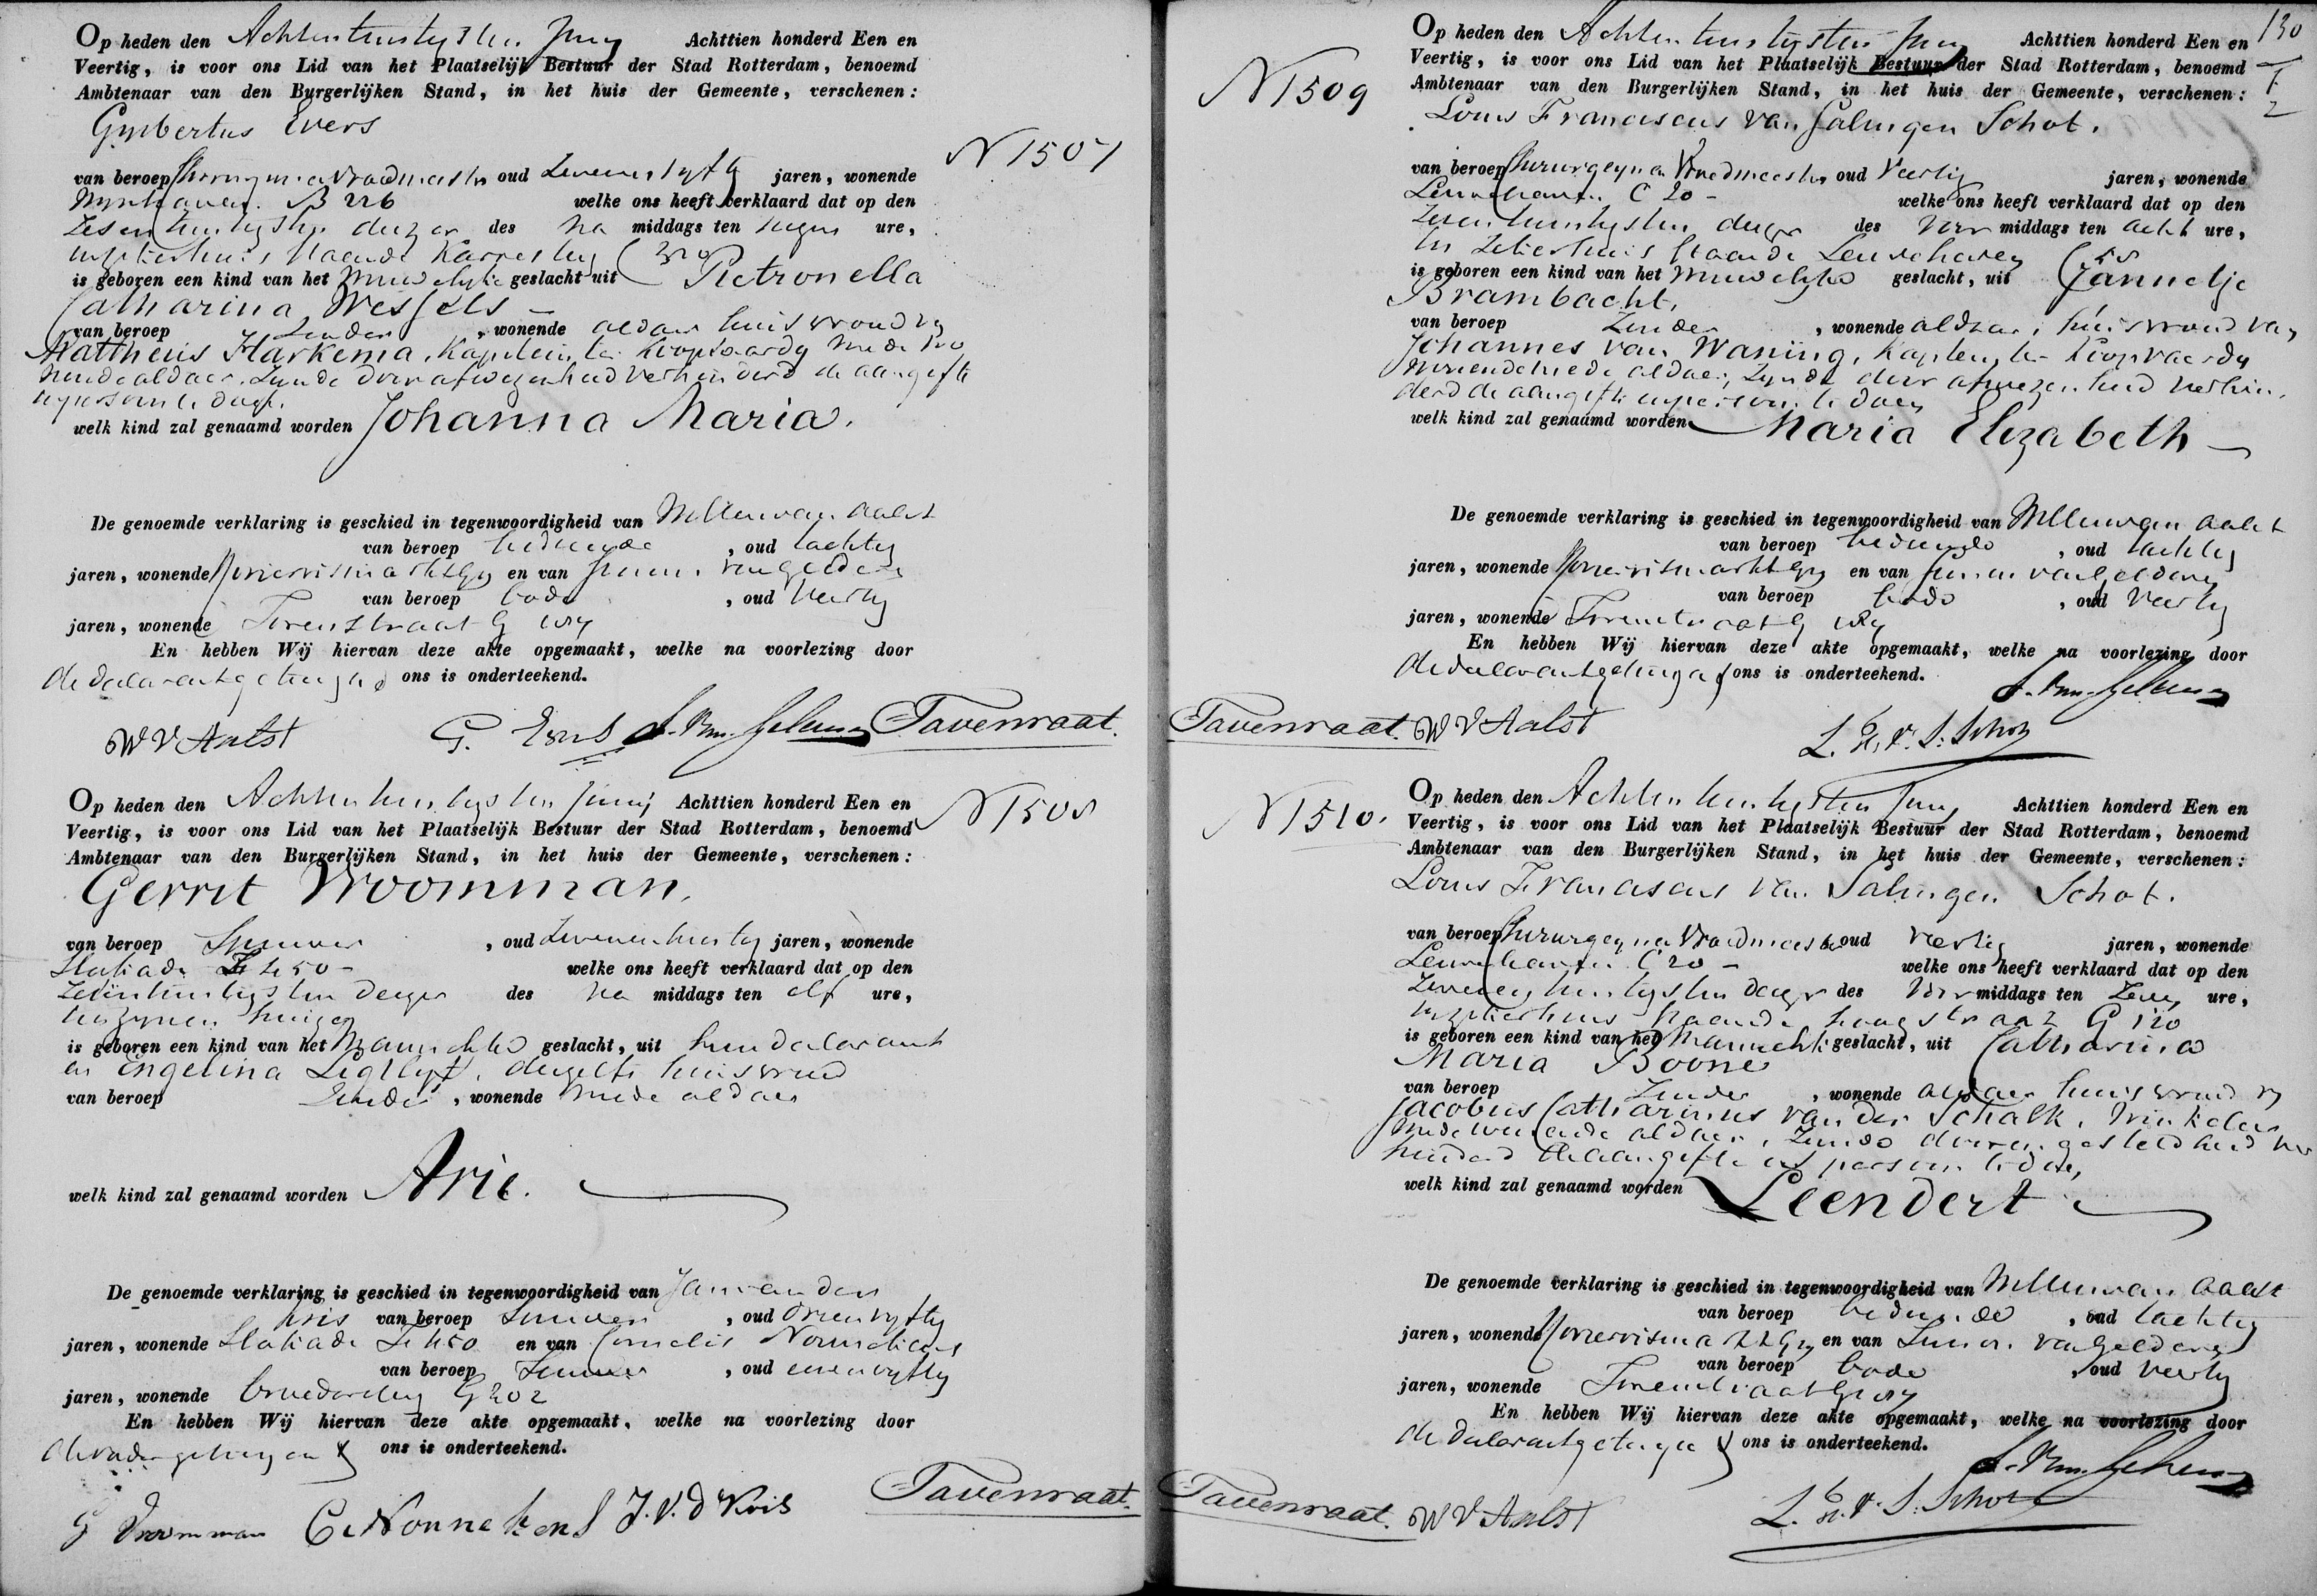 Op heden den Achtentwintigsten Juny Achttien honderd Een en
Veertig, is voor ons Lid van het Plaatselijk Bestuur der Stad Rotterdam, benoemd
Ambtenaar van den Burgerlijken Stand, in het huis der Gemeente, verschenen:
Gysbertus Evers
N 1507
van beroep Chirurgyn en Vroedmeester oud Zevenenvyftig jaren, wonende
Wynhaven B 226 welke ons heeft verklaard dat op den
Zesentwintigsten dezer des Na middags ten negen ure,
in zyn huis staande
is geboren een kind van het Vrouwelyke geslacht uit Pietronella
Catharina Wessels
van beroep Zonder, wonende aldaar huisvrouw van
Mattheus Harkema, Kapitein ter Koopvaardy mede wo
nende aldaar, zynde door afwezenheid verhinderd de aangifte
in persoon te doen.
welk kind zal genaamd worden Johanna Maria.
De genoemde verklaring is geschied in tegenwoordigheid van Willem van Aalst
van beroep bediende, oud tachtig
jaren, wonende en van van Gelderen
van beroep bode, oud Veertig
jaren, wonende Torenstraat G
En hebben Wij hiervan deze akte opgemaakt, welke na voorlezing door
de declarant getuigen & ons is onderteekend.
W V Aalst G. Evers Tavenraat.
Op heden den Achtentwintigsten Junij Achttien honderd Een en
N 1508
Veertig, is voor ons Lid van het Plaatselijk Bestuur der Stad Rotterdam, benoemd
Ambtenaar van den Burgerlijken Stand, in het huis der Gemeente, verschenen:
Gerrit Vroomman.
van beroep, oud Zevenentwintig jaren, wonende
welke ons heeft verklaard dat op den
Zesentwintigsten dezer des Na middags ten elf ure,
ten zynen huize
is geboren een kind van het Mannelyke geslacht, uit hem declarant
en Engelina Ligtlyf, deszelfs huisvrouw
van beroep Zonder, wonende mede aldaar
welk kind zal genaamd worden Arie.
De genoemde verklaring is geschied in tegenwoordigheid van Jan van der
Kris van beroep, oud Drieenvyftig
jaren, wonende en van Cornelis Nonnekens
van beroep, oud eenenvyftig
jaren, wonende G 202
En hebben Wij hiervan deze akte opgemaakt, welke na voorlezing door
de vader getuigen & ons is onderteekend.
Tavenraat.
G Vroomman C Nonnekens J. V. D Kris
130
Op heden den Achtentwintigsten Juny Achttien honderd Een en
Veertig, is voor ons Lid van het Plaatselijk Bestuur der Stad Rotterdam, benoemd
N 1509
Ambtenaar van den Burgerlijken Stand, in het huis der Gemeente, verschenen:
Louis Franciscus van Salingen Schot.
van beroep Chirurgyn en Vroedmeester oud Veertig jaren, wonende
Leuvehaven C 20 - welke ons heeft verklaard dat op den
Zesentwintigsten dezer des Voor middags ten acht ure,
staande Leuvehaven
is geboren een kind van het Vrouwelyke geslacht, uit Jannetje
Brambacht,
van beroep Zonder, wonende aldaar, huisvrouw van
Johannes van Waning, Kapitein ter Koopvaardy
wonende mede aldaar, zynde door afwezenheid verhin
derd de aangifte in persoon te doen
welk kind zal genaamd worden Maria Elizabeth
De genoemde verklaring is geschied in tegenwoordigheid van Willem van Aalst
van beroep bediende, oud tachtig
jaren, wonende en van van Gelderen
van beroep bode, oud Veertig
jaren, wonende Torenstraat G
En hebben Wij hiervan deze akte opgemaakt, welke na voorlezing door
de declarant getuigen & ons is onderteekend.
Tavenraat. W V Aalst
L. F. V. S. Schot
Op heden den Achtentwintigsten Juny Achttien honderd Een en
N 1510.
Veertig, is voor ons Lid van het Plaatselijk Bestuur der Stad Rotterdam, benoemd
Ambtenaar van den Burgerlijken Stand, in het huis der Gemeente, verschenen:
Louis Franciscus van Salingen Schot.
van beroep Chirurgyn en Vroedmeester oud Veertig jaren, wonende
Leuvehaven C 20 - welke ons heeft verklaard dat op den
Zevenentwintigsten dezer des Voor middags ten Zeven ure,
staande hoogstraat G 120
is geboren een kind van het Mannelyke geslacht, uit Catharina
Maria Boone
van beroep Zonder, wonende aldaar huisvrouw van
Jacobus Catharinus van der Schalk, Winkelier
mede wonende aldaar, zynde door ongesteldheid ver
hinderd de aangifte in persoon te doen,
welk kind zal genaamd worden Leendert
De genoemde verklaring is geschied in tegenwoordigheid van Willem van Aalst
van beroep bediende, oud tachtig
jaren, wonende en van van Gelderen
van beroep bode, oud Veertig
jaren, wonende Torenstraat G
En hebben Wij hiervan deze akte opgemaakt, welke na voorlezing door
de declarant getuigen & ons is onderteekend.
Tavenraat. W V Aalst L. F. V. S. Schot